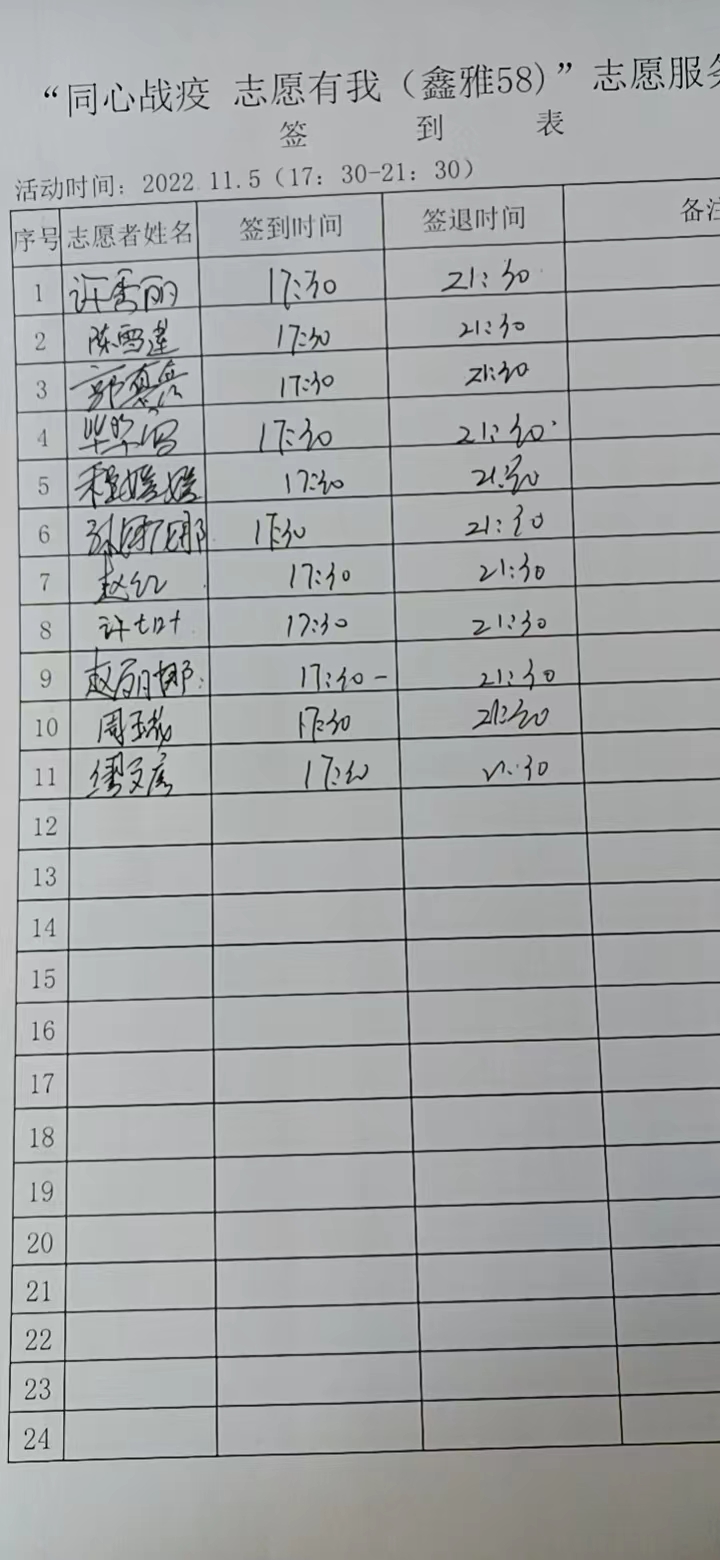 “同心战疫 志愿有我（鑫雅58）”志愿服务
签 到 表
活动时间：2022 11.5（17：30-21：30）
序号 志愿者姓名 签到时间 签退时间 备注
1 许秀丽 17:30 21:30
2 陈雪莲 17:30 21:30
3 郭 17:30 21:30
4 17:30 21:30
5 程媛媛 17:30 21:30
6 17:30 21:30
7 赵红 17:30 21:30
8 许 17:30 21:30
9 赵丽娜 17:30 21:30
10 周玉 17:30 21:30
11 17:30 21:30
12
13
14
15
16
17
18
19
20
21
22
23
24